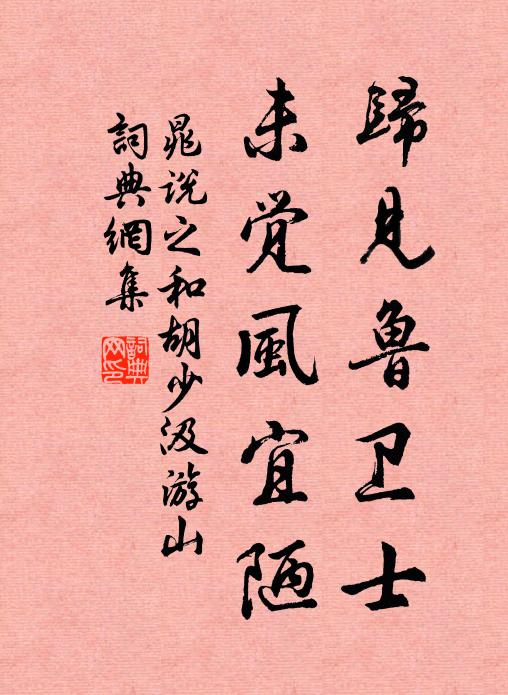 歸見魯卫士
未觉風宜陋
晁说之和胡少汲游山
詞典網集
詞典網印